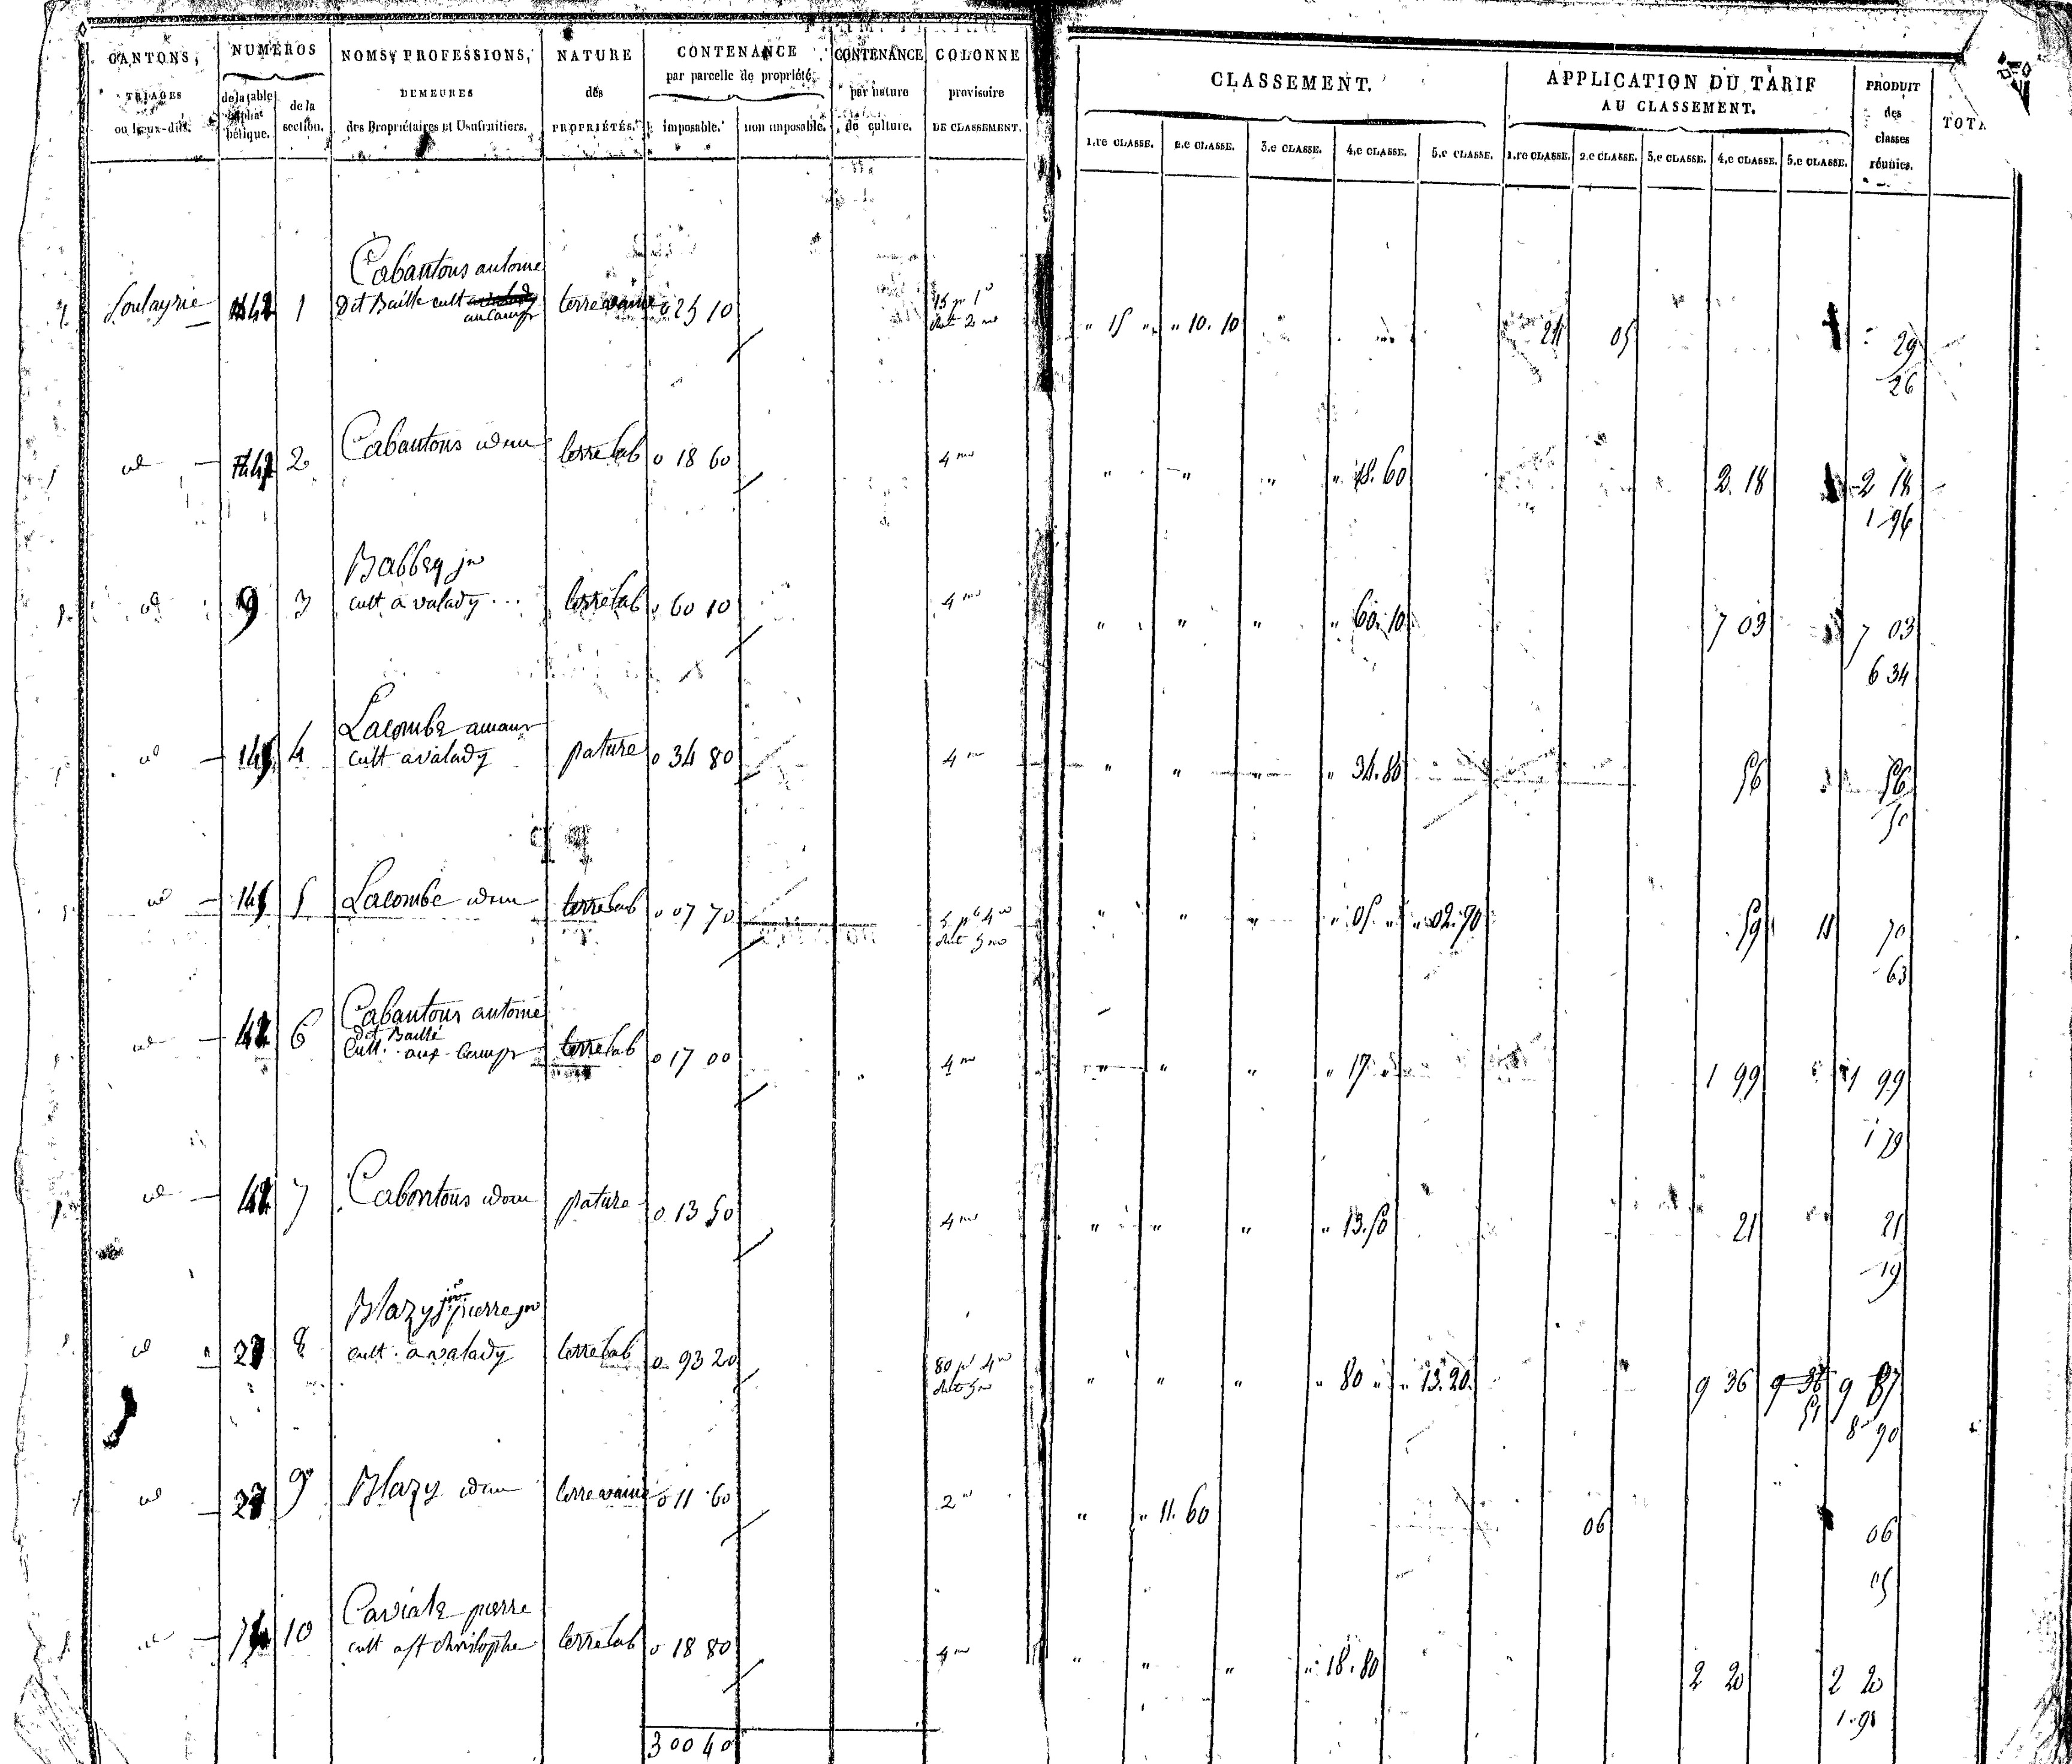 CANTONS, TRIAGES ou lieux-dits.
NUMÉROS
de la table alphabétique.
de la section.
NOMS, PROFESSIONS, DEMEURES des Propriétaires et Usufruitiers.
NATURE des PROPRIÉTÉS.
CONTENANCE par parcelle de propriété
imposable.
non imposable.
CONTENANCE par nature de culture.
COLONNE provisoire DE CLASSEMENT.
CLASSEMENT.
1.re CLASSE. 2.e CLASSE. 3.e CLASSE. 4.e CLASSE. 5.e CLASSE.
APPLICATION DU TARIF AU CLASSEMENT.
1.re CLASSE. 2.e CLASSE. 3.e CLASSE. 4.e CLASSE. 5.e CLASSE.
PRODUIT des classes réunies.
Cabantous antoine
1 dit Baille cult terre vaine 0 25 10 " 15 " " 10. 10 24 05 29
26
2 Cabantous idem terre lab 0 18 60 4me " " " " 18. 60 2. 18 2 18
1 96
id 9 3 cult à valady terre lab 0 60 10 4me " " " " 60. 10 7 03 7 03
6 34
Lacombe
id 4 cult a valady pature 0 34 80 4me " " " " 34. 80 56 56
50
id 5 Lacombe idem terre lab 0 07 70 " " " " 05. " " 02. 70 59 11 70
63
Cabantous antoine
dit Baille
6 Cult. aux Camps terre lab 0 17 00 4me " " " " 17 " 1 99 1 99
1 79
id 7 Cabantous idem pature 0 13 50 4me " " " " 13. 50 21 21
19
Blazy pierre jn
id 8 cult. à valady terre lab 0 93 20 80 pr 4me " " " " 80 " " 13. 20 9 36 9 36 9 87
51 8 90
id 9 Blazy idem terre vaine 0 11 60 2e " " 11. 60 06 06
05
Caviale pierre
10 cult a st christophe terre lab 0 18 80 4me " " " " 18. 80 2 20 2 20
1. 98
3 00 40